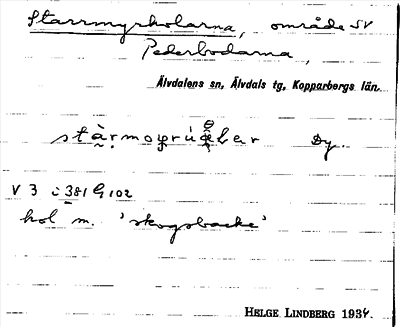 Starrmyrkolarna, område SV
Pederbodarna,
Älvdalens sn, Älvdals tg, Kopparbergs län.
Dy.
V 3 c 381 G 102
kol m. 'skogsbacke'
HELGE LINDBERG 1934.